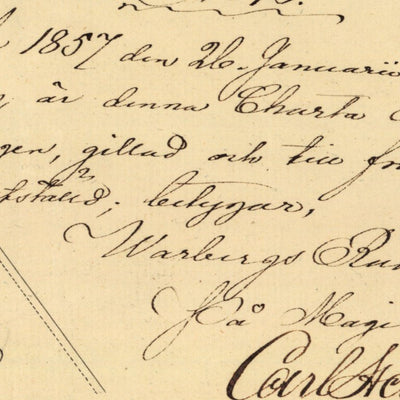 1857 den 26 Januarii
är denna Charta
gen, gillad och till
ställd; betygar,
Warbergs
På Magi
Carl